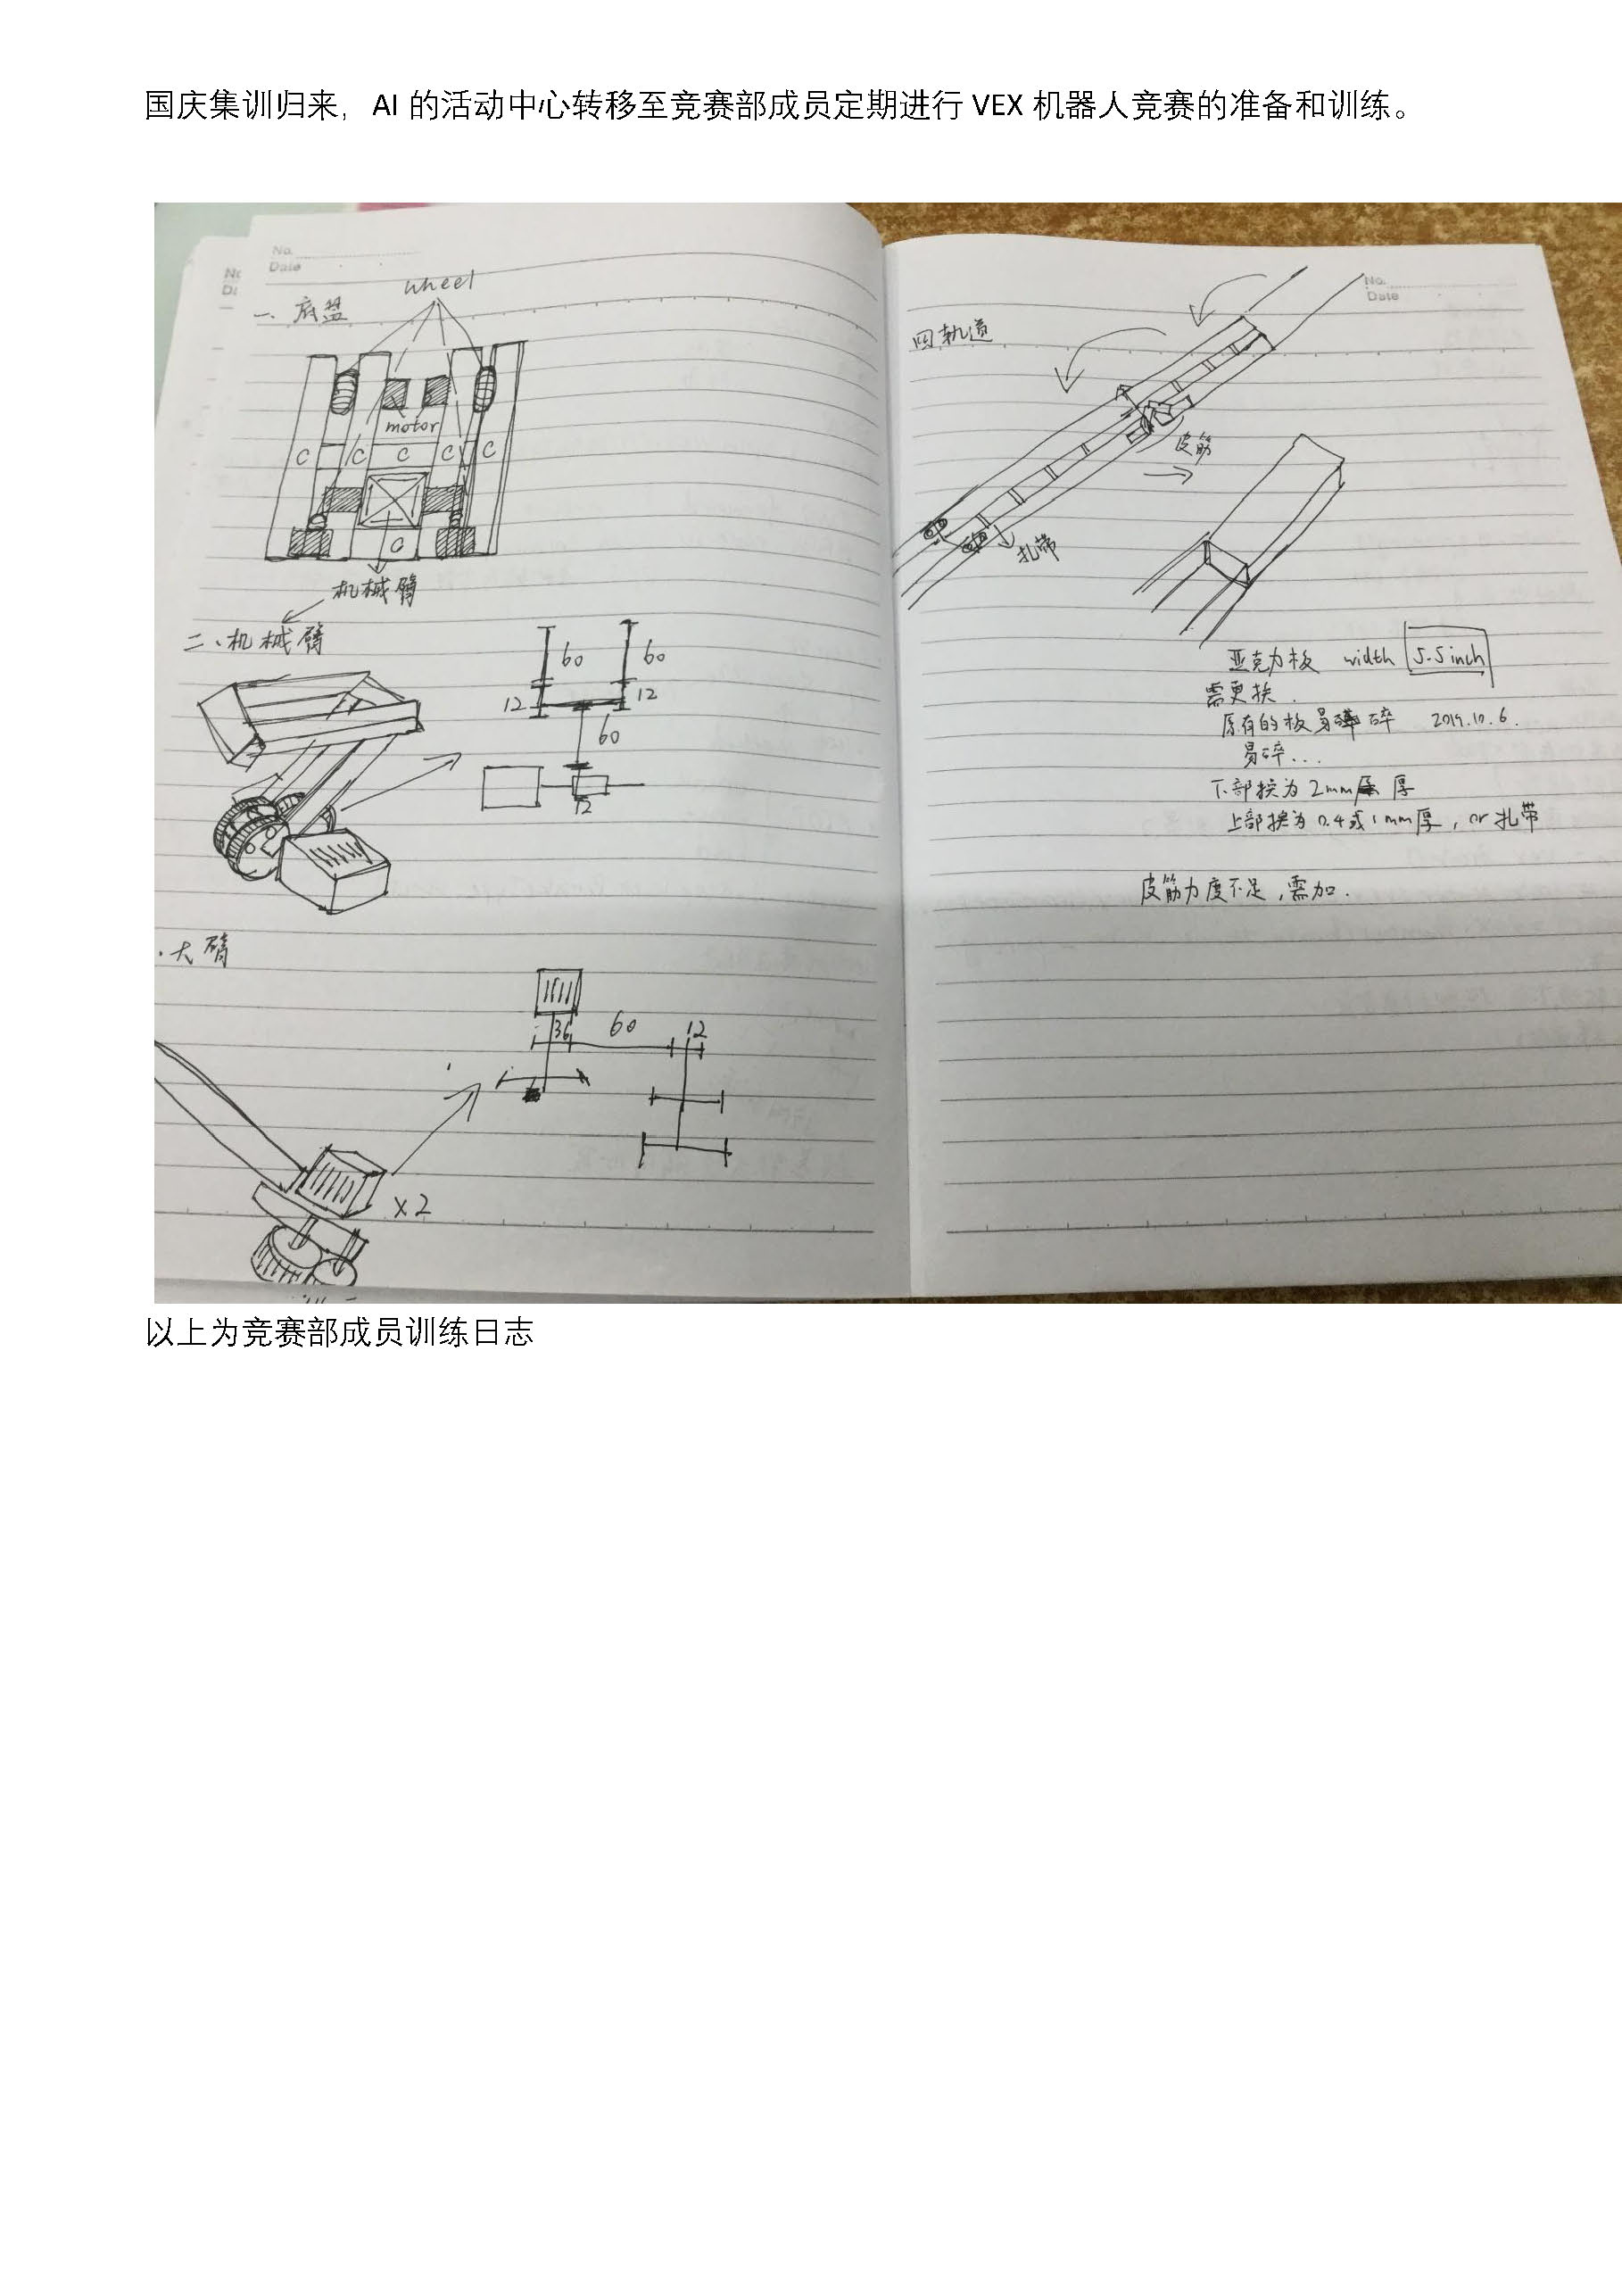 国庆集训归来，AI 的活动中心转移至竞赛部成员定期进行 VEX 机器人竞赛的准备和训练。
No.
Date
wheel
一、底盘
motor
C C C C C
C
机械臂
二、机械臂
60 60
12 12
60
12
大臂
36 60 12
x2
No.
Date
四轨道
皮筋
扎带
亚克力板 width 5.5inch
需更换.
原有的板易碎 2019.10.6.
易碎...
下部换为2mm厚
上部换为0.4或1mm厚, or 扎带
皮筋力度不足,需加.
以上为竞赛部成员训练日志